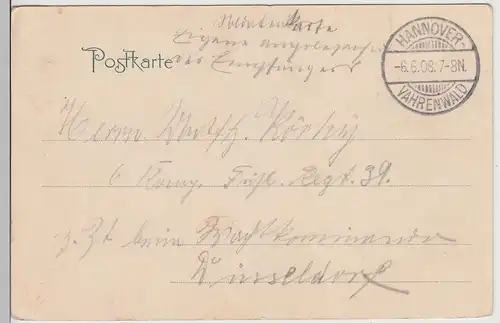 Soldatenkarte
Eigene Angelegenheit
des Empfängers
Postkarte
HANNOVER-
-6.6.08.7-8N.
VAHRENWALD
Herrn
6 Komp. Füsl. Regt. 39.
z. Zt. beim Wachtkommando
Düsseldorf